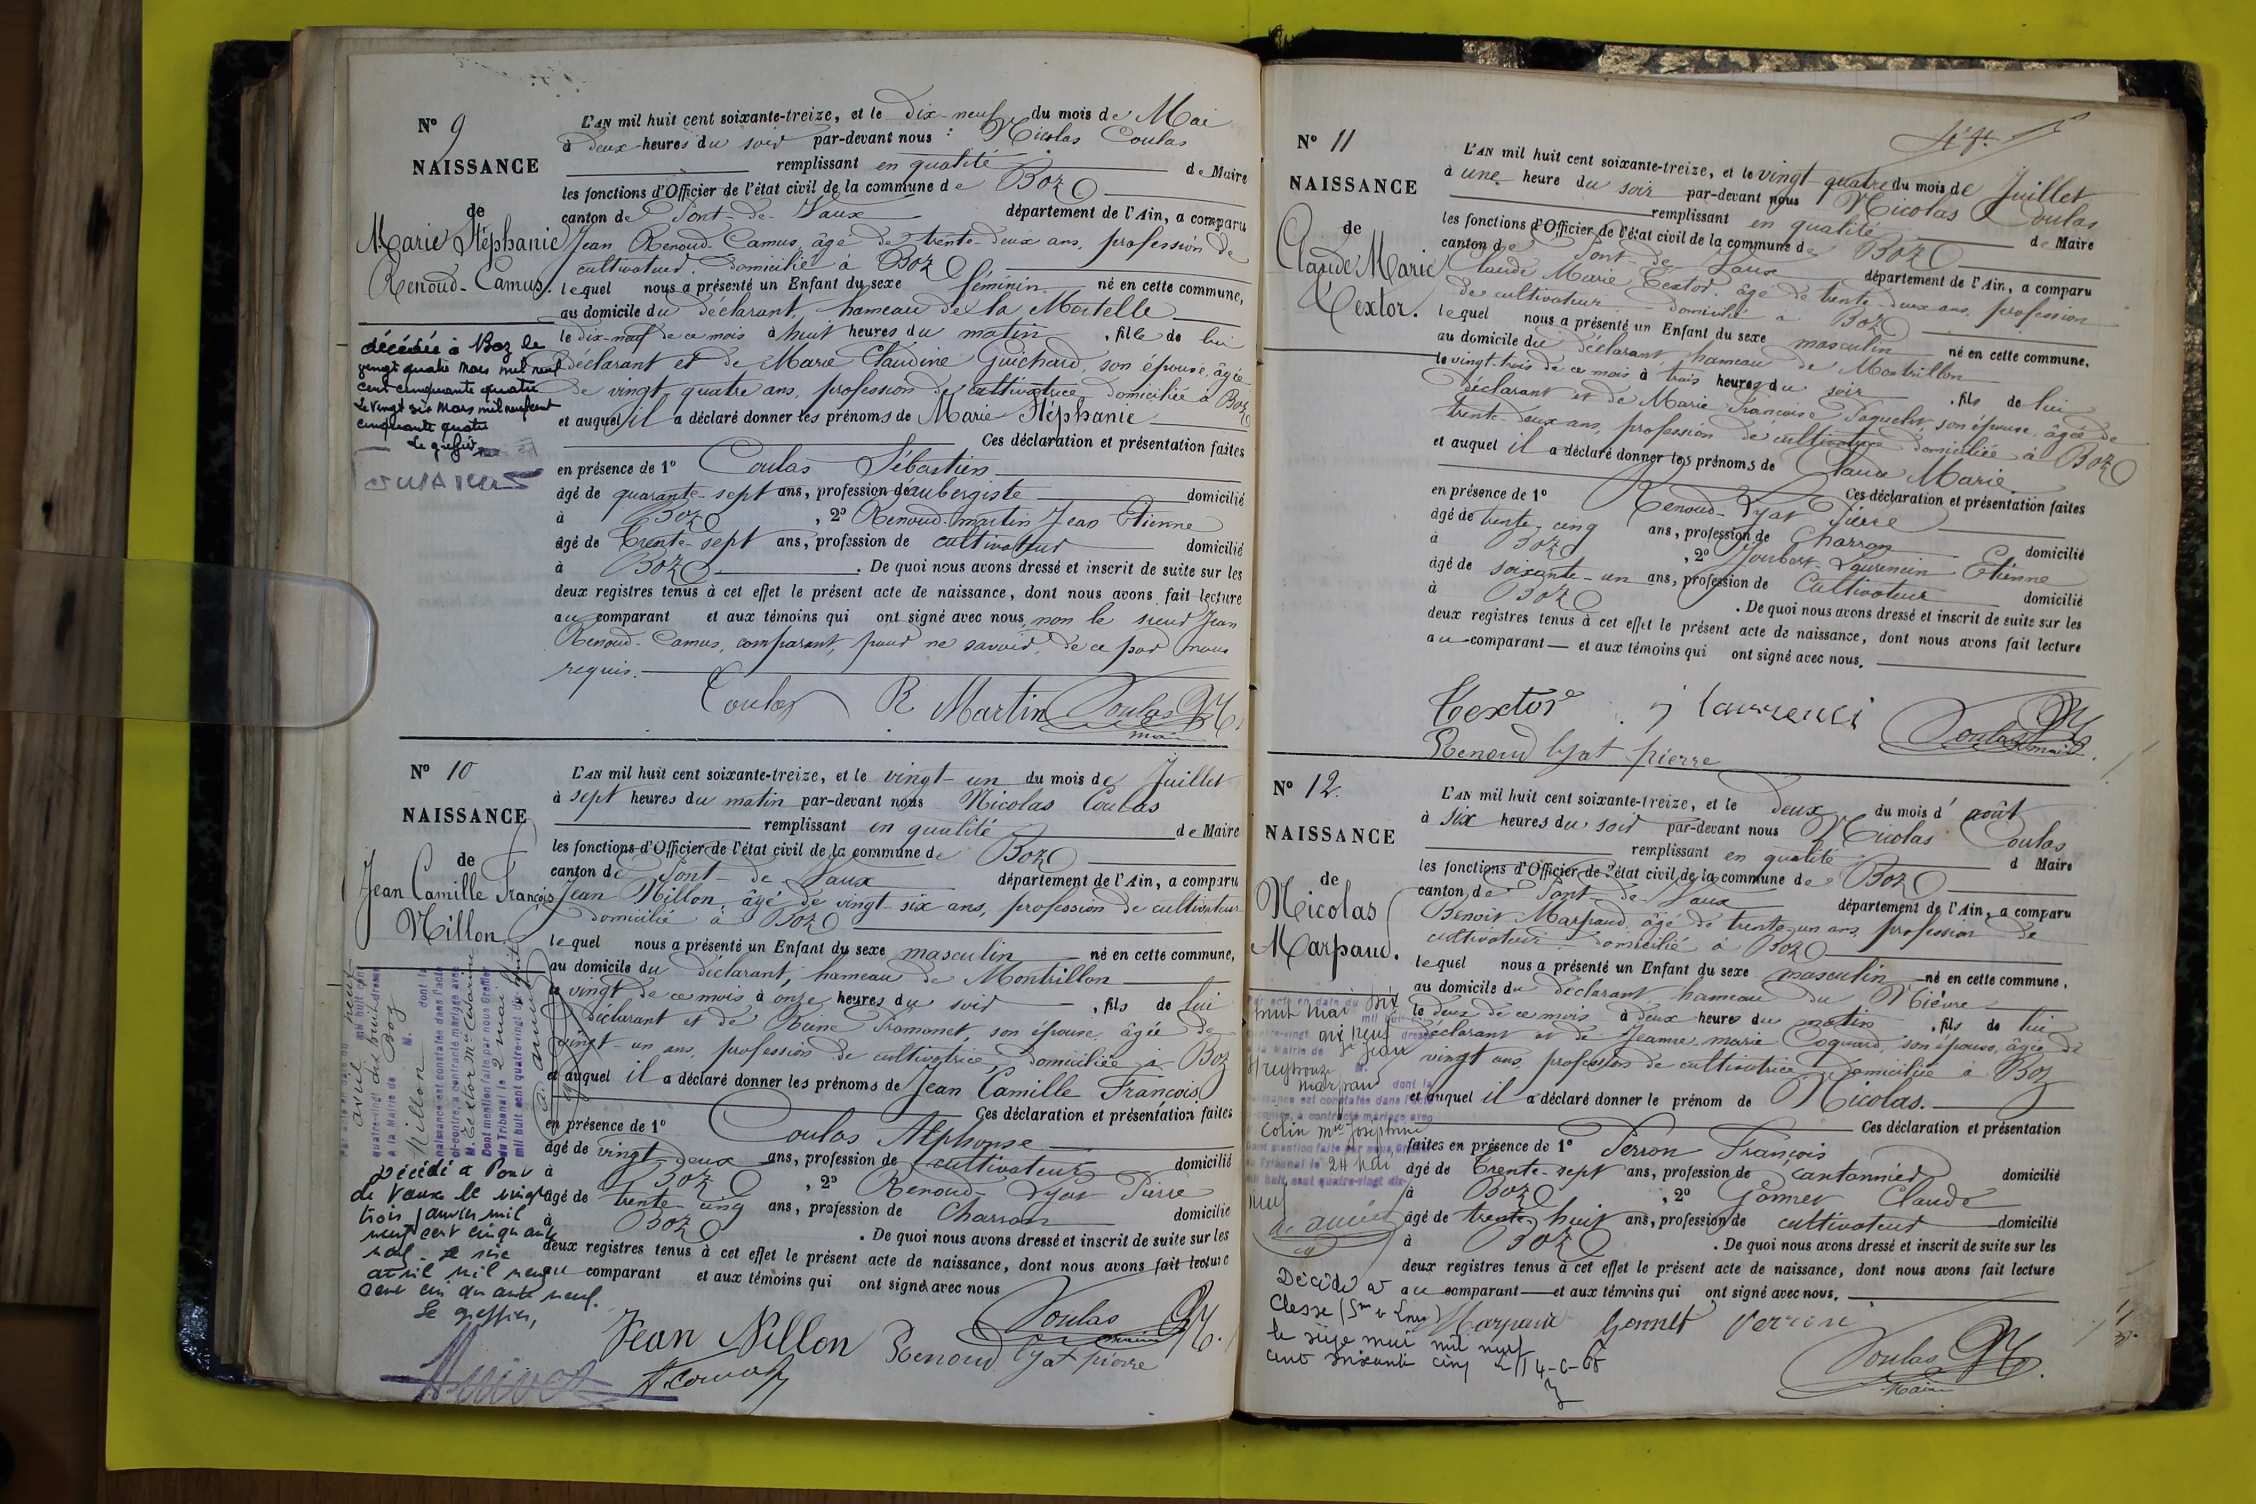 N° 9
NAISSANCE
de
Marie Stéphanie
Renoud-Camus.
décédée à Boz le
vingt quatre Mars mil neuf
cent cinquante quatre
Le vingt six Mars mil neuf cent
cinquante quatre
Le greffier
L'AN mil huit cent soixante-treize, et le dix-neuf du mois de Mai
à deux heures du soir par-devant nous : Nicolas Coulas
remplissant en qualité de Maire
les fonctions d'Officier de l'état civil de la commune de Boz
canton de Pont-de-Vaux département de l'Ain, a comparu
Jean Renoud-Camus, âgé de trente-deux ans, profession de
cultivateur, domicilié à Boz
lequel nous a présenté un Enfant du sexe féminin né en cette commune,
au domicile du déclarant, hameau de la Mortelle
le dix-neuf de ce mois à huit heures du matin, fille de lui
déclarant et de Marie Claudine Guichard, son épouse, âgée
de vingt-quatre ans, profession de cultivatrice domiciliée à Boz
et auquel il a déclaré donner les prénoms de Marie Stéphanie
Ces déclaration et présentation faites
en présence de 1° Coulas Sébastien
âgé de quarante-sept ans, profession d'aubergiste domicilié
à Boz, 2° Renoud-martin Jean Etienne
âgé de trente-sept ans, profession de cultivateur domicilié
à Boz. De quoi nous avons dressé et inscrit de suite sur les
deux registres tenus à cet effet le présent acte de naissance, dont nous avons fait lecture
au comparant et aux témoins qui ont signé avec nous, non le sieur Jean
Renoud-Camus, comparant, pour ne savoir, de ce par nous
requis.
Coulas R Martin Coulas N
maire
N° 10
NAISSANCE
de
Jean Camille François
Nillon.
avril mil huit cent
quatre-vingt dix huit dressé
à la Mairie de Boz
Nillon M. dont la
naissance est constatée dans l'acte
ci-contre, a contracté mariage avec
M. Textor Mie Claudine
Dont mention faite par nous Greffier
du Tribunal le 2 mai
mil huit cent quatre-vingt dix huit
Décédé à Pont
de Vaux le vingt
trois janvier mil
neuf cent cinquante
neuf. Le six
avril mil neuf
cent cinquante neuf.
Le greffier,
L'AN mil huit cent soixante-treize, et le vingt-un du mois de Juillet
à sept heures du matin par-devant nous Nicolas Coulas
remplissant en qualité de Maire
les fonctions d'Officier de l'état civil de la commune de Boz
canton de Pont-de-Vaux département de l'Ain, a comparu
Jean Nillon, âgé de vingt-six ans, profession de cultivateur
domicilié à Boz
lequel nous a présenté un Enfant du sexe masculin né en cette commune,
au domicile du déclarant, hameau de Montrillon
le vingt de ce mois à onze heures du soir, fils de lui
déclarant et de Reine Pramonet, son épouse, âgée de
vingt-un ans, profession de cultivatrice, domiciliée à Boz
et auquel il a déclaré donner les prénoms de Jean Camille François
Ces déclaration et présentation faites
en présence de 1° Coulas Alphonse
âgé de vingt-deux ans, profession de cultivateur domicilié
à Boz, 2° Renoud-Lyat Pierre
âgé de trente-cinq ans, profession de Charron domicilié
à Boz. De quoi nous avons dressé et inscrit de suite sur les
deux registres tenus à cet effet le présent acte de naissance, dont nous avons fait lecture
au comparant et aux témoins qui ont signé avec nous
Coulas N
maire
Jean Nillon Renoud lyat pierre
N° 11
NAISSANCE
de
Claude Marie
Textor.
L'AN mil huit cent soixante-treize, et le vingt-quatre du mois de Juillet
à une heure du soir par-devant nous Nicolas Coulas
remplissant en qualité de Maire
les fonctions d'Officier de l'état civil de la commune de Boz
canton de Pont-de-Vaux département de l'Ain, a comparu
Claude Marie Textor, âgé de trente-deux ans, profession
de cultivateur domicilié à Boz
lequel nous a présenté un Enfant du sexe masculin né en cette commune,
au domicile du déclarant, hameau de Montrillon
le vingt-trois de ce mois à trois heures du soir, fils de lui
déclarant et de Marie Françoise son épouse, âgée de
trente-deux ans, profession de cultivatrice domiciliée à Boz
et auquel il a déclaré donner les prénoms de Claude Marie
Ces déclaration et présentation faites
en présence de 1° Renoud-Lyat Pierre
âgé de trente-cinq ans, profession de Charron domicilié
à Boz, 2° Joubert-Laurencin Etienne
âgé de soixante-un ans, profession de Cultivateur domicilié
à Boz. De quoi nous avons dressé et inscrit de suite sur les
deux registres tenus à cet effet le présent acte de naissance, dont nous avons fait lecture
au comparant et aux témoins qui ont signé avec nous.
Textor j laurenci Coulas N
maire
Renoud lyat pierre
N° 12.
NAISSANCE
de
Nicolas
Marpaud.
Par acte en date du dix
huit mai mil huit cent
quatre-vingt dix neuf dressé
à la Mairie de St Jean
s/ Reyssouze M.
marpaud dont la
naissance est constatée dans l'acte
ci-contre, a contracté mariage avec
Colin Mie Joséphine
Dont mention faite par nous, Greffier
du Tribunal le 24 Mai
mil huit cent quatre-vingt dix-
neuf
Décédé à
Clesse (Sne & Loire)
le seize mai mil neuf
cent soixante cinq 14-6-65
L'AN mil huit cent soixante-treize, et le deux du mois d'août
à six heures du soir par-devant nous Nicolas Coulas
remplissant en qualité d Maire
les fonctions d'Officier de l'état civil de la commune de Boz
canton de Pont-de-Vaux département de l'Ain, a comparu
Benoit Marpaud, âgé de trente-un ans, profession de
cultivateur domicilié à Boz
lequel nous a présenté un Enfant du sexe masculin né en cette commune,
au domicile du déclarant, hameau du Nièvre
le deux de ce mois à deux heures du matin, fils de lui
déclarant et de Jeanne marie Coquard, son épouse, âgée de
vingt ans, profession de cultivatrice, domiciliée à Boz
et auquel il a déclaré donner le prénom de Nicolas.
Ces déclaration et présentation
faites en présence de 1° Perron François
âgé de trente-sept ans, profession de cantonnier domicilié
à Boz, 2° Gonnet Claude
âgé de trente-huit ans, profession de cultivateur domicilié
à Boz. De quoi nous avons dressé et inscrit de suite sur les
deux registres tenus à cet effet le présent acte de naissance, dont nous avons fait lecture
au comparant et aux témoins qui ont signé avec nous.
Marpaud Gonnet Perron
Coulas N
Maire